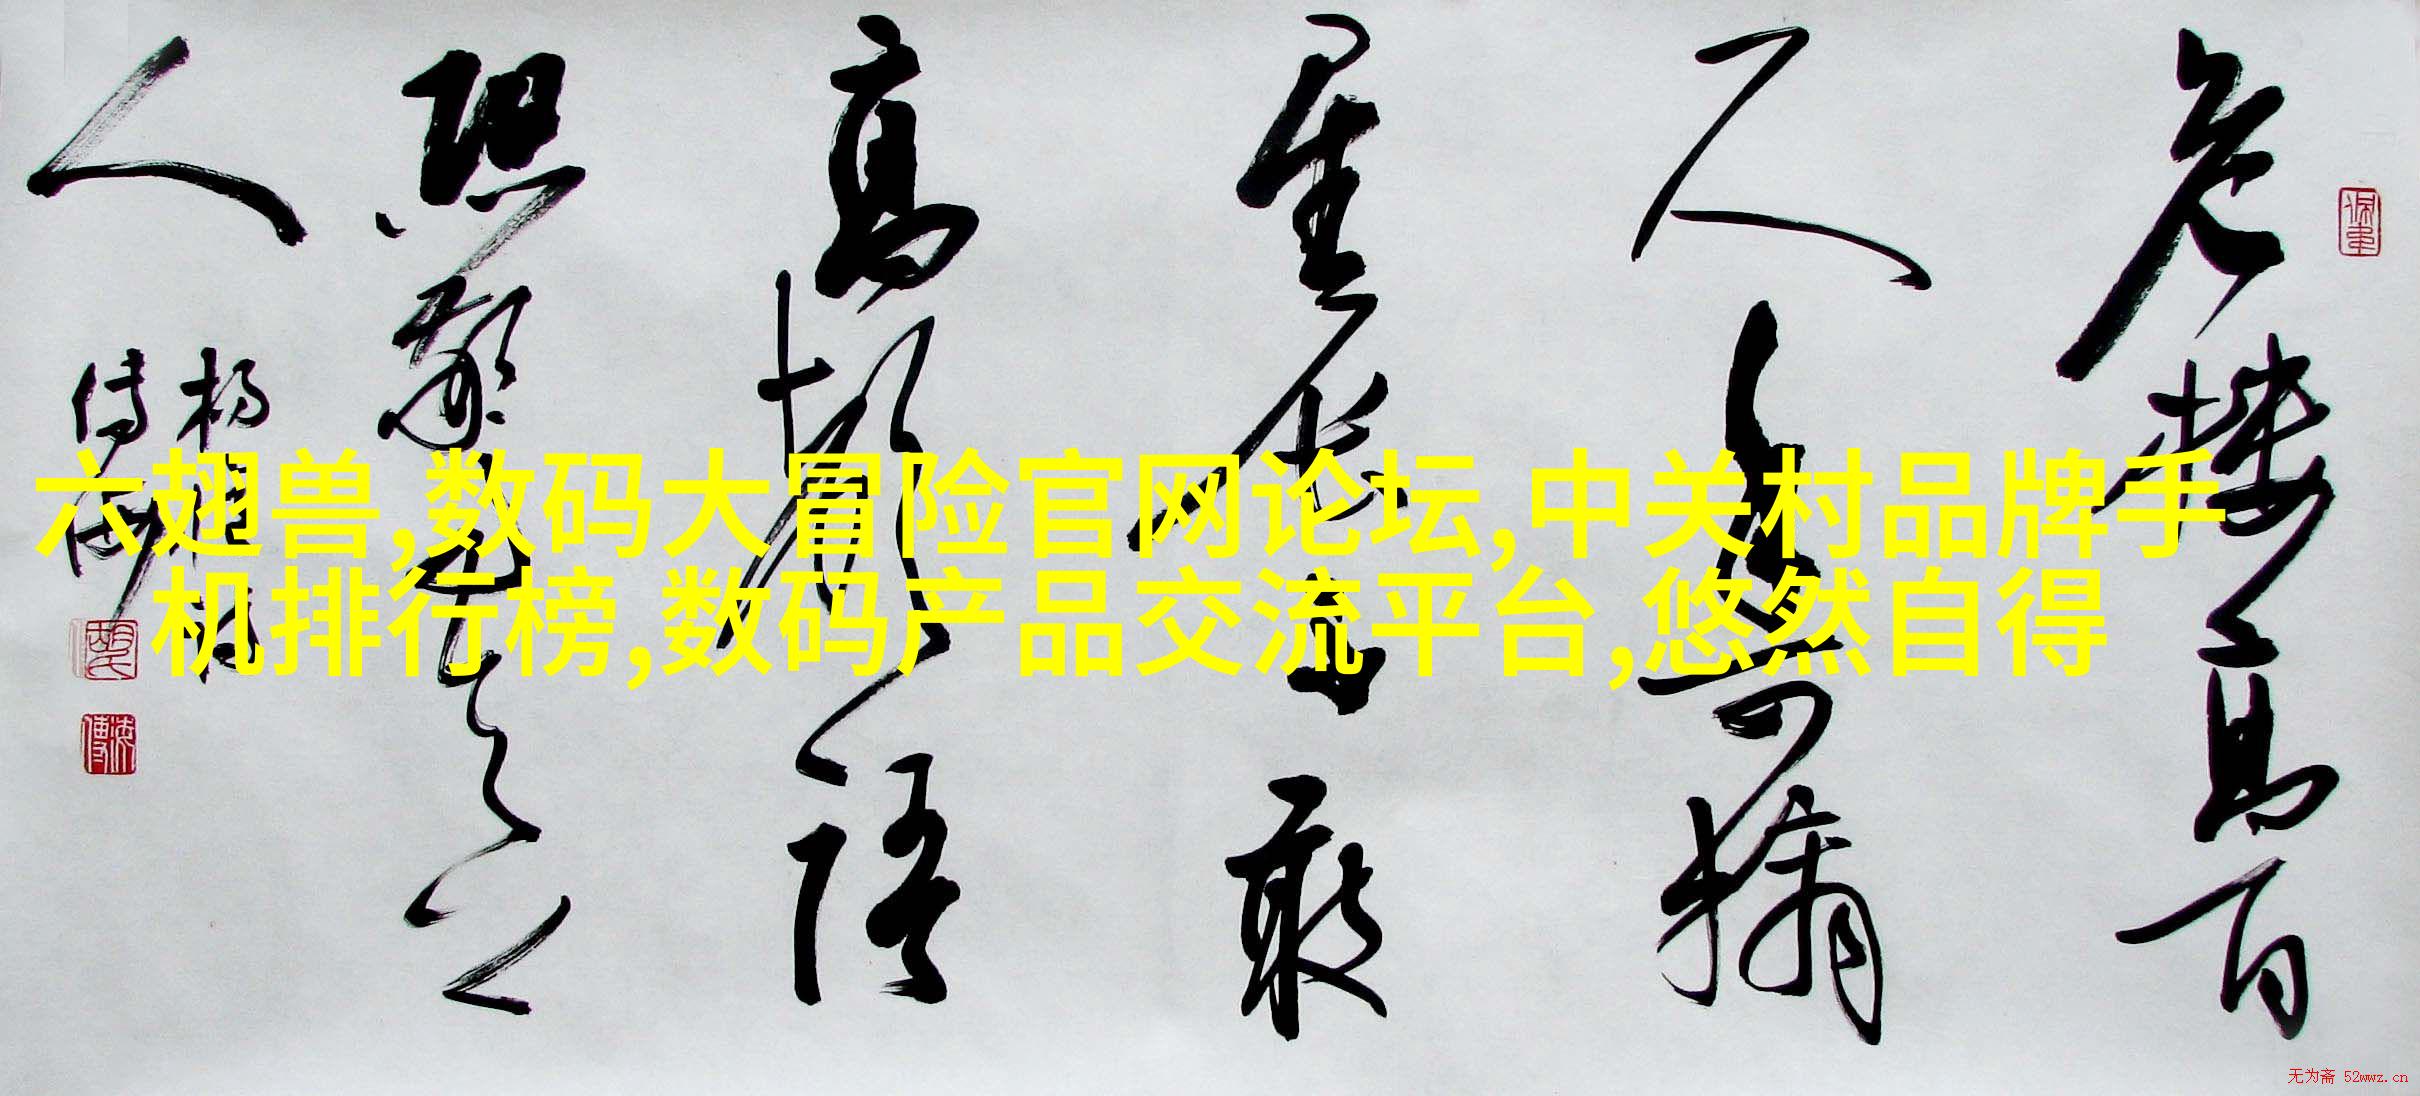 危楼高百
尺手可摘
星辰不敢
高声语
恐惊天上
人
六翅兽,数码大冒险官网论坛,中关村品牌手
机排行榜,数码产品交流平台,悠然自得
无为斋 52wwz.cn